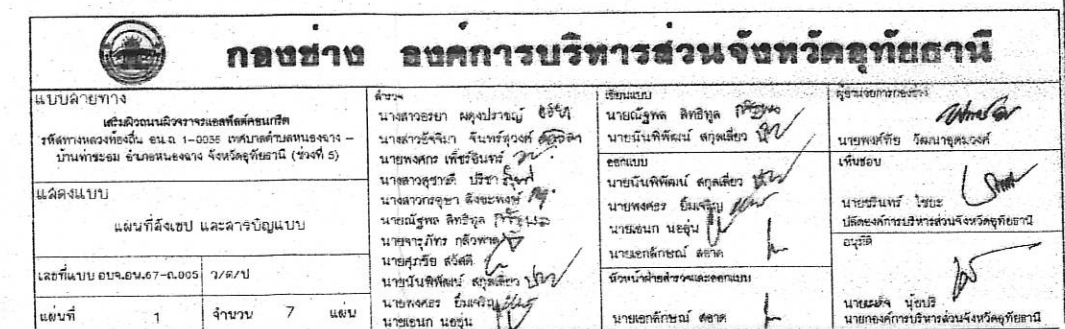 กองช่าง องค์การบริหารส่วนจังหวัดอุทัยธานี
แบบสายทาง
เสริมผิวถนนผิวจราจรแอสฟัลต์คอนกรีต
รหัสทางหลวงท้องถิ่น อน.ถ 1-0036 เทศบาลตำบลหนองฉาง –
บ้านท่าชะอม อำเภอหนองฉาง จังหวัดอุทัยธานี (ช่วงที่ 5)
แสดงแบบ
แผนที่สังเขป และสารบัญแบบ
เลขที่แบบ อบจ.อน.67-ถ.005 ว/ด/ป
แผ่นที่ 1 จำนวน 7 แผ่น
สำรวจ
นางสาวอรยา ผดุงปราชญ์
นางสาวรัจจิมา จันทร์สุวงค์
นายพงศกร เพ็ชร์อินทร์
นางสาวสุชาวดี ปรีชา
นางสาวกรอุษา สังขะพงษ์
นายณัฐพล สิทธิทูล
นายจารุภัทร กลัวพาล
นายศุภรชัย สวัสดี
นายนันพิพัฒน์ สกุลเดียว
นายพงศธร ยิ้มเจริญ
นายเอนก นออุ่น
เขียนแบบ
นายณัฐพล สิทธิทูล
นายนันพิพัฒน์ สกุลเดียว
ออกแบบ
นายนันพิพัฒน์ สกุลเดียว
นายพงศธร ยิ้มเจริญ
นายเอนก นออุ่น
นายเอกลักษณ์ สอาด
หัวหน้าฝ่ายสำรวจและออกแบบ
นายเอกลักษณ์ สอาด
ผู้อำนวยการกองช่าง
นายพงศ์ทัย วัฒนาอุดมวงศ์
เห็นชอบ
นายชรินทร์ ไชยะ
ปลัดองค์การบริหารส่วนจังหวัดอุทัยธานี
อนุมัติ
นายเผด็จ นุ้ยปรี
นายกองค์การบริหารส่วนจังหวัดอุทัยธานี